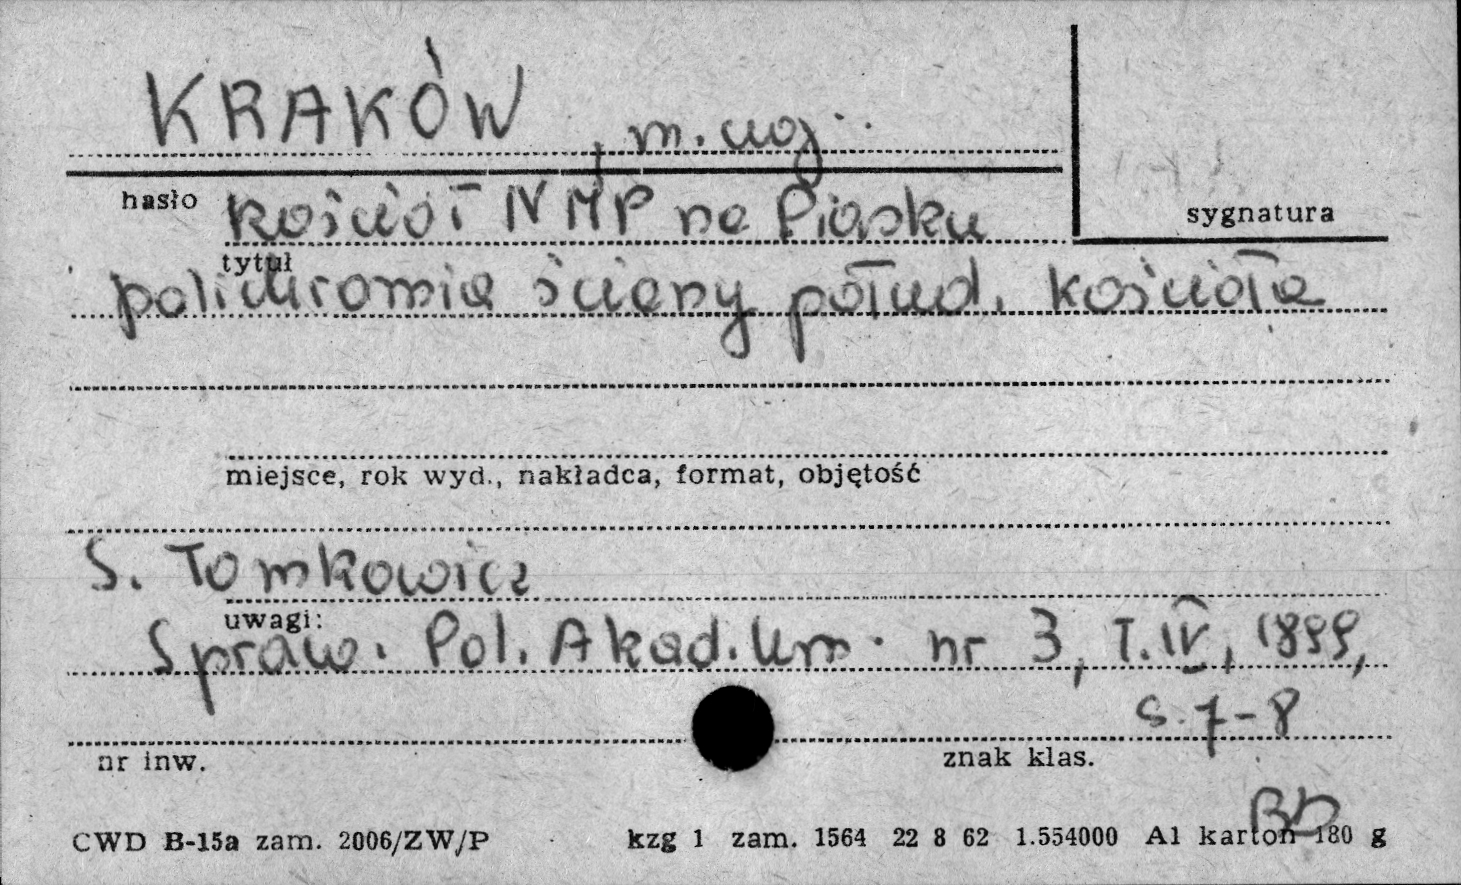 KRAKÓW, m. woj.
hasło
kościół NMP na Piasku
sygnatura
tytuł
polichromia ściany połud. kościoła
miejsce, rok wyd., nakładca, format, objętość
S. Tomkowicz
uwagi:
Spraw. Pol. Akad. Um. nr 3, T. IV, 1899,
s. 7-8
nr inw.
znak klas.
BD
CWD B-15a zam. 2006/ZW/P kzg 1 zam. 1564 22 8 62 1.554000 A1 karton 180 g